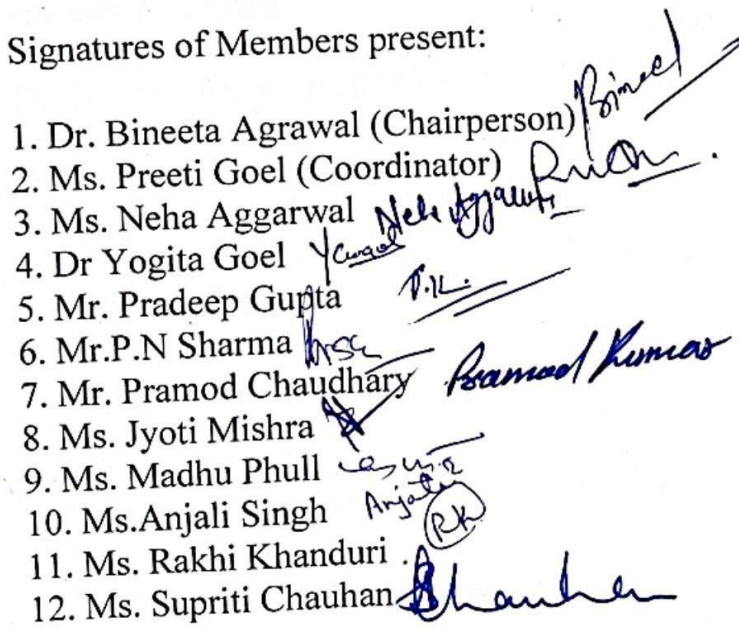 Signatures of Members present:
1. Dr. Bineeta Agrawal (Chairperson)
2. Ms. Preeti Goel (Coordinator)
3. Ms. Neha Aggarwal Neha Aggarwal
4. Dr Yogita Goel
5. Mr. Pradeep Gupta P.K.
6. Mr.P.N Sharma
7. Mr. Pramod Chaudhary Pramod Kumar
8. Ms. Jyoti Mishra
9. Ms. Madhu Phull
10. Ms.Anjali Singh Anjali
11. Ms. Rakhi Khanduri RK
12. Ms. Supriti Chauhan